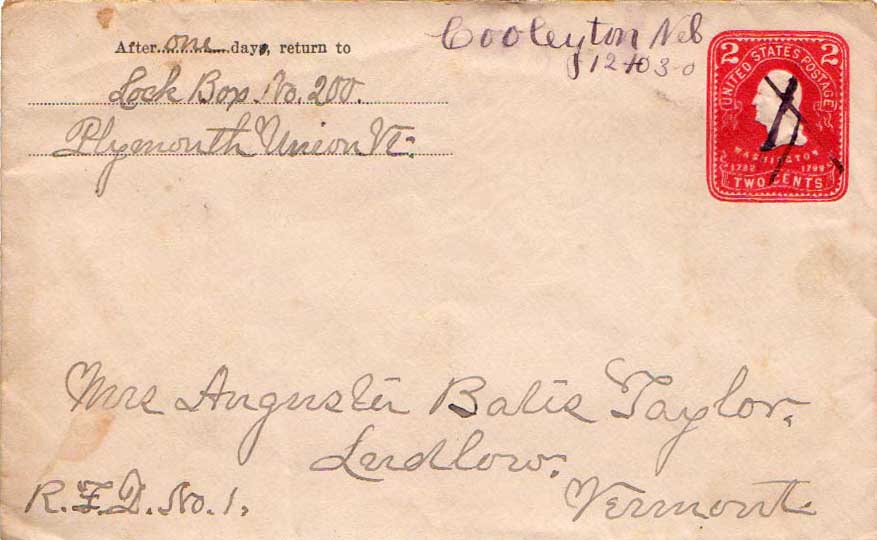 After one days, return to
Lock Box No. 200.
Plymouth Union Vt.
Cooleyton Neb
12 03
2 2
UNITED STATES POSTAGE
WASHINGTON
1732 1799
TWO CENTS
Mrs Auguster Batis Taylor.
Ludlow.
R.F.D. No. 1. Vermont.